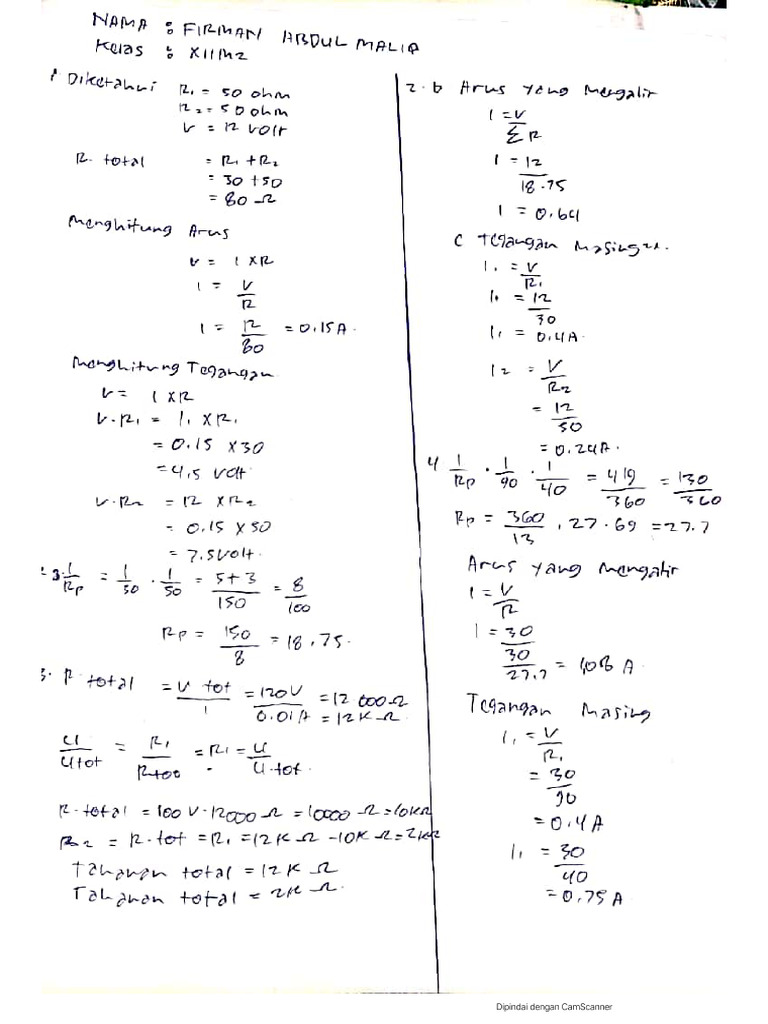 NAMA : FIRMAN ABDUL MALIQ
Kelas : XIIM2
1 Diketahui R₁ = 50 ohm
R₂ = 50 ohm
V = 12 volt
R. total = R₁ + R₂
= 30 + 50
= 80 Ω
Menghitung Arus
V = I x R
I = V/R
I = 12/80 = 0.15 A.
Menghitung Tegangan
V = I x R
V.R₁ = I₁ x R₁
= 0.15 x 30
= 4,5 volt
V.R₂ = 12 x R₂
= 0.15 x 50
= 7.5 volt.
3. 1/Rp = 1/30 . 1/50 = 5+3/150 = 8/100
Rp = 150/8 = 18,75.
3. R total = V tot/I = 120V/0.01A = 12 000 Ω
= 12K Ω
U/Utot = R₁/Rtot = R₁ = U/U.tot.
R.total = 100 V.12000 Ω = 10000 Ω = 10KΩ
R₂ = R.tot = R₁ = 12K Ω - 10K Ω = 2KΩ
Tahanan total = 12K Ω
Tahanan total = 2K Ω.
2.b Arus yang Mengalir
I = V/ΣR
I = 12/18.75
I = 0.64
C Tegangan Masing2x.
I₁ = V/R₁
I₁ = 12/30
I₁ = 0,4A.
I2 = V/R2
= 12/50
= 0.24A.
4 1/Rp . 1/90 . 1/40 = 419/360 = 130/360
Rp = 360/13 , 27.69 = 27.7
Arus yang mengalir
I = V/R
I = 30/30/27.7 = 1,08 A.
Tegangan Masing
I₁ = V/R₁
= 30/90
= 0.4 A
I₁ = 30/40
= 0,75 A.
Dipindai dengan CamScanner